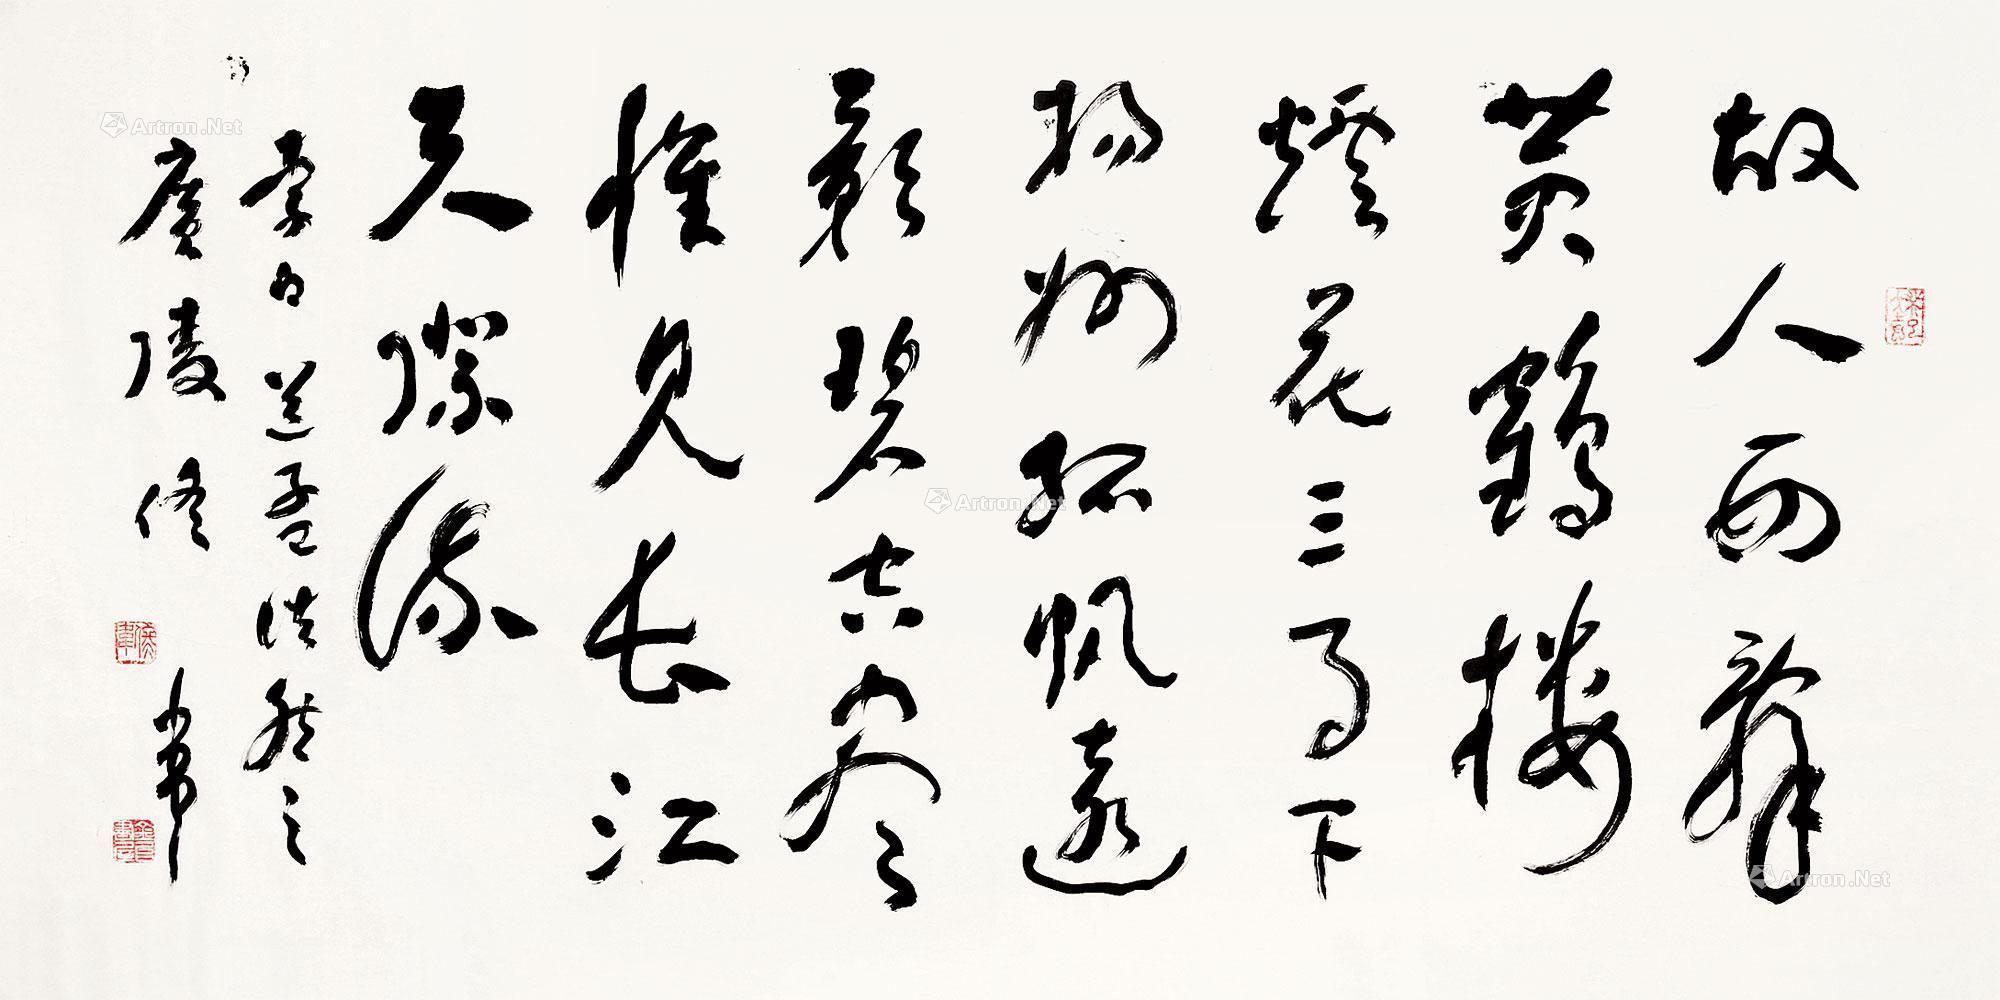 故人西辭
黄鶴樓
煙花三月下
揚州孤帆遠
影碧空盡
惟見長江
天際流
李白送孟浩然之
廣陵 佟韋
Artron.Net
Artron.Net
Artron.Net